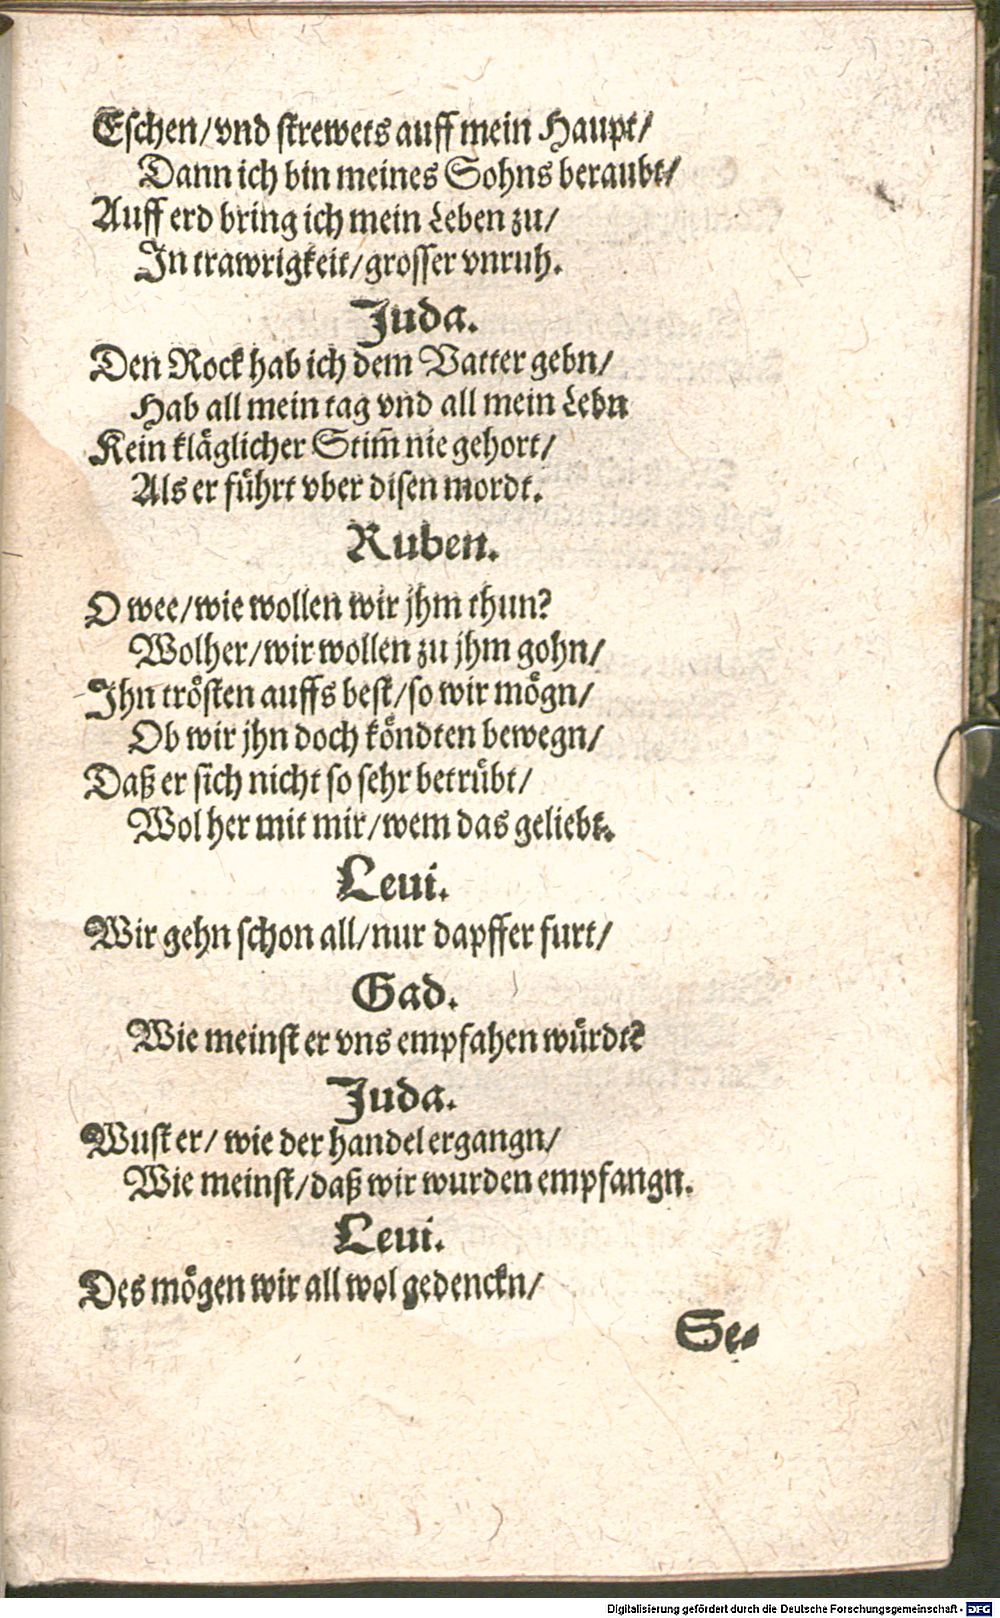 Eschen/vnd strewets auff mein Haupt/
Dann ich bin meines Sohns beraubt/
Auff erd bring ich mein Leben zu/
In trawrigkeit/grosser vnruh.
Juda.
Den Rock hab ich dem Vatter gebn/
Hab all mein tag vnd all mein Lebn
Kein kläglicher Stim̃ nie gehort/
Als er führt vber disen mordt.
Ruben.
O wee/wie wollen wir jhm thun?
Wolher/wir wollen zu jhm gohn/
Ihn trösten auffs best/so wir mögn/
Ob wir jhn doch köndten bewegn/
Daß er sich nicht so sehr betrübt/
Wol her mit mir/wem das geliebt.
Leui.
Wir gehn schon all/nur dapffer furt/
Gad.
Wie meinst er vns empfahen würdt?
Juda.
Wust er/ wie der handel ergangn/
Wie meinst/daß wir wurden empfangn.
Leui.
Des mögen wir all wol gedenckn/
Se-
Digitalisierung gefördert durch die Deutsche Forschungsgemeinschaft - DFG